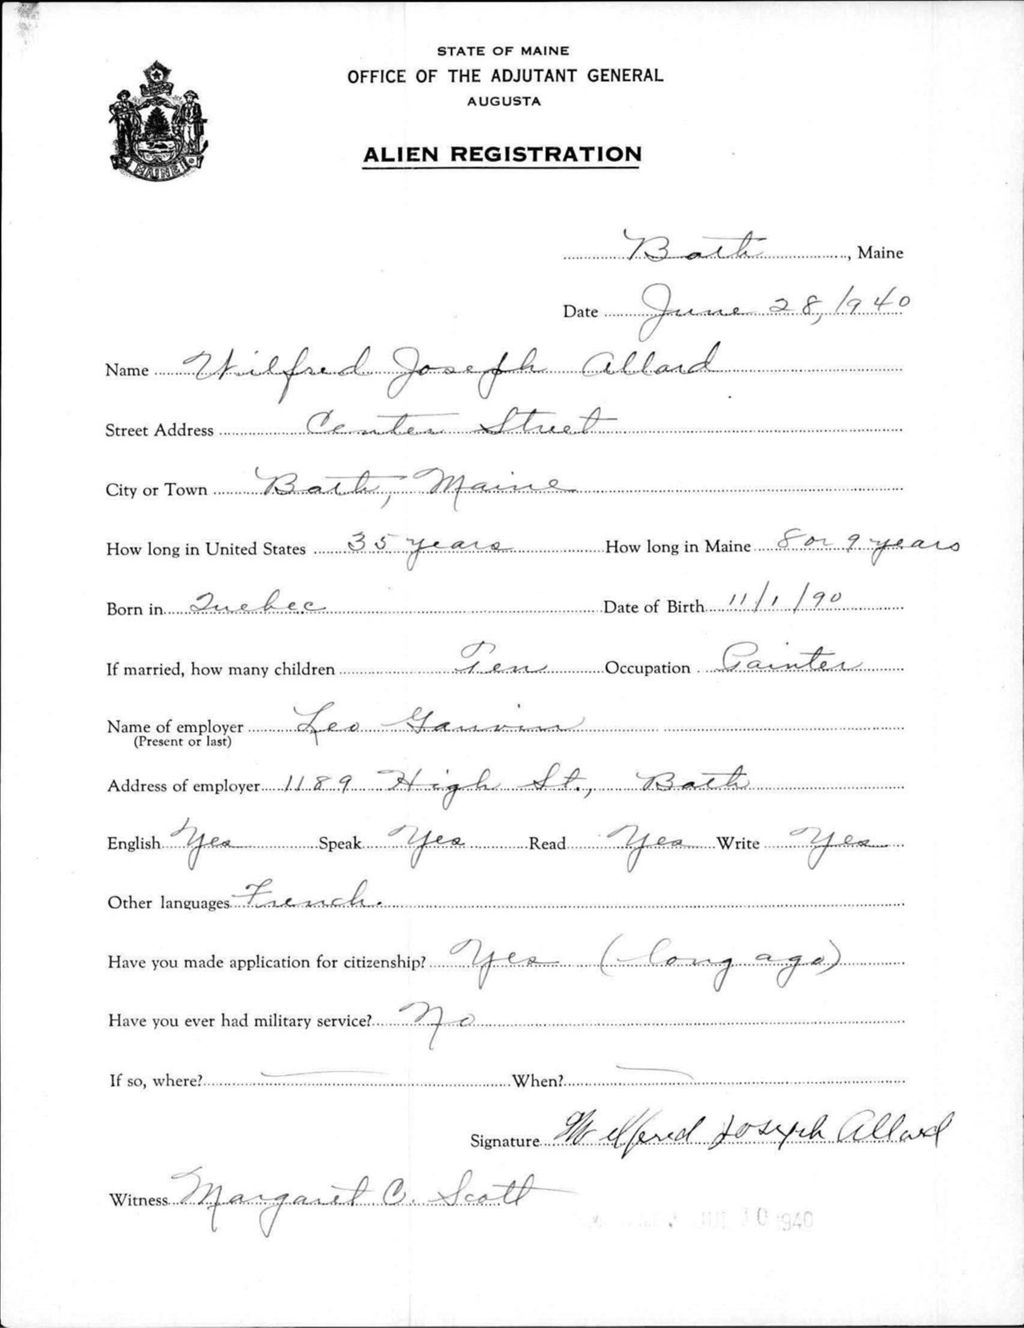 STATE OF MAINE
OFFICE OF THE ADJUTANT GENERAL
AUGUSTA
ALIEN REGISTRATION
MAINE
Bath, Maine
Date June 28, 1940
Name Wilfred Joseph Allard
Street Address Center Street
City or Town Bath, Maine
How long in United States 35 years How long in Maine 8 or 9 years
Born in Quebec Date of Birth 11/1/90
If married, how many children Ten Occupation Painter
Name of employer Leo Gauvin
(Present or last)
Address of employer 1189 High St., Bath
English Yes Speak Yes Read Yes Write Yes
Other languages French.
Have you made application for citizenship? Yes (long ago)
Have you ever had military service? No
If so, where? When?
Signature Wilfred Joseph Allard
Witness Margaret C. Scott
10 1940